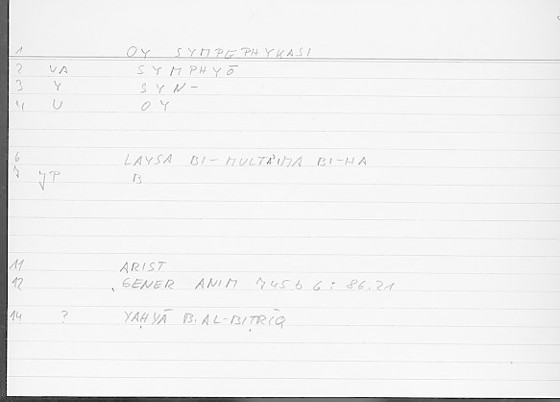 1 OY SYMPEPHYKASI
2 VA SYMPHYŌ
3 Y SYN-
4 U OY
6 LAYSA BI-MULTAʾIMA BI-HA
7 JP B
11 ARIST
12 GENER ANIM 745 b 6 : 86.21
14 ? YAḤYĀ B. AL-BIṬRĪQ